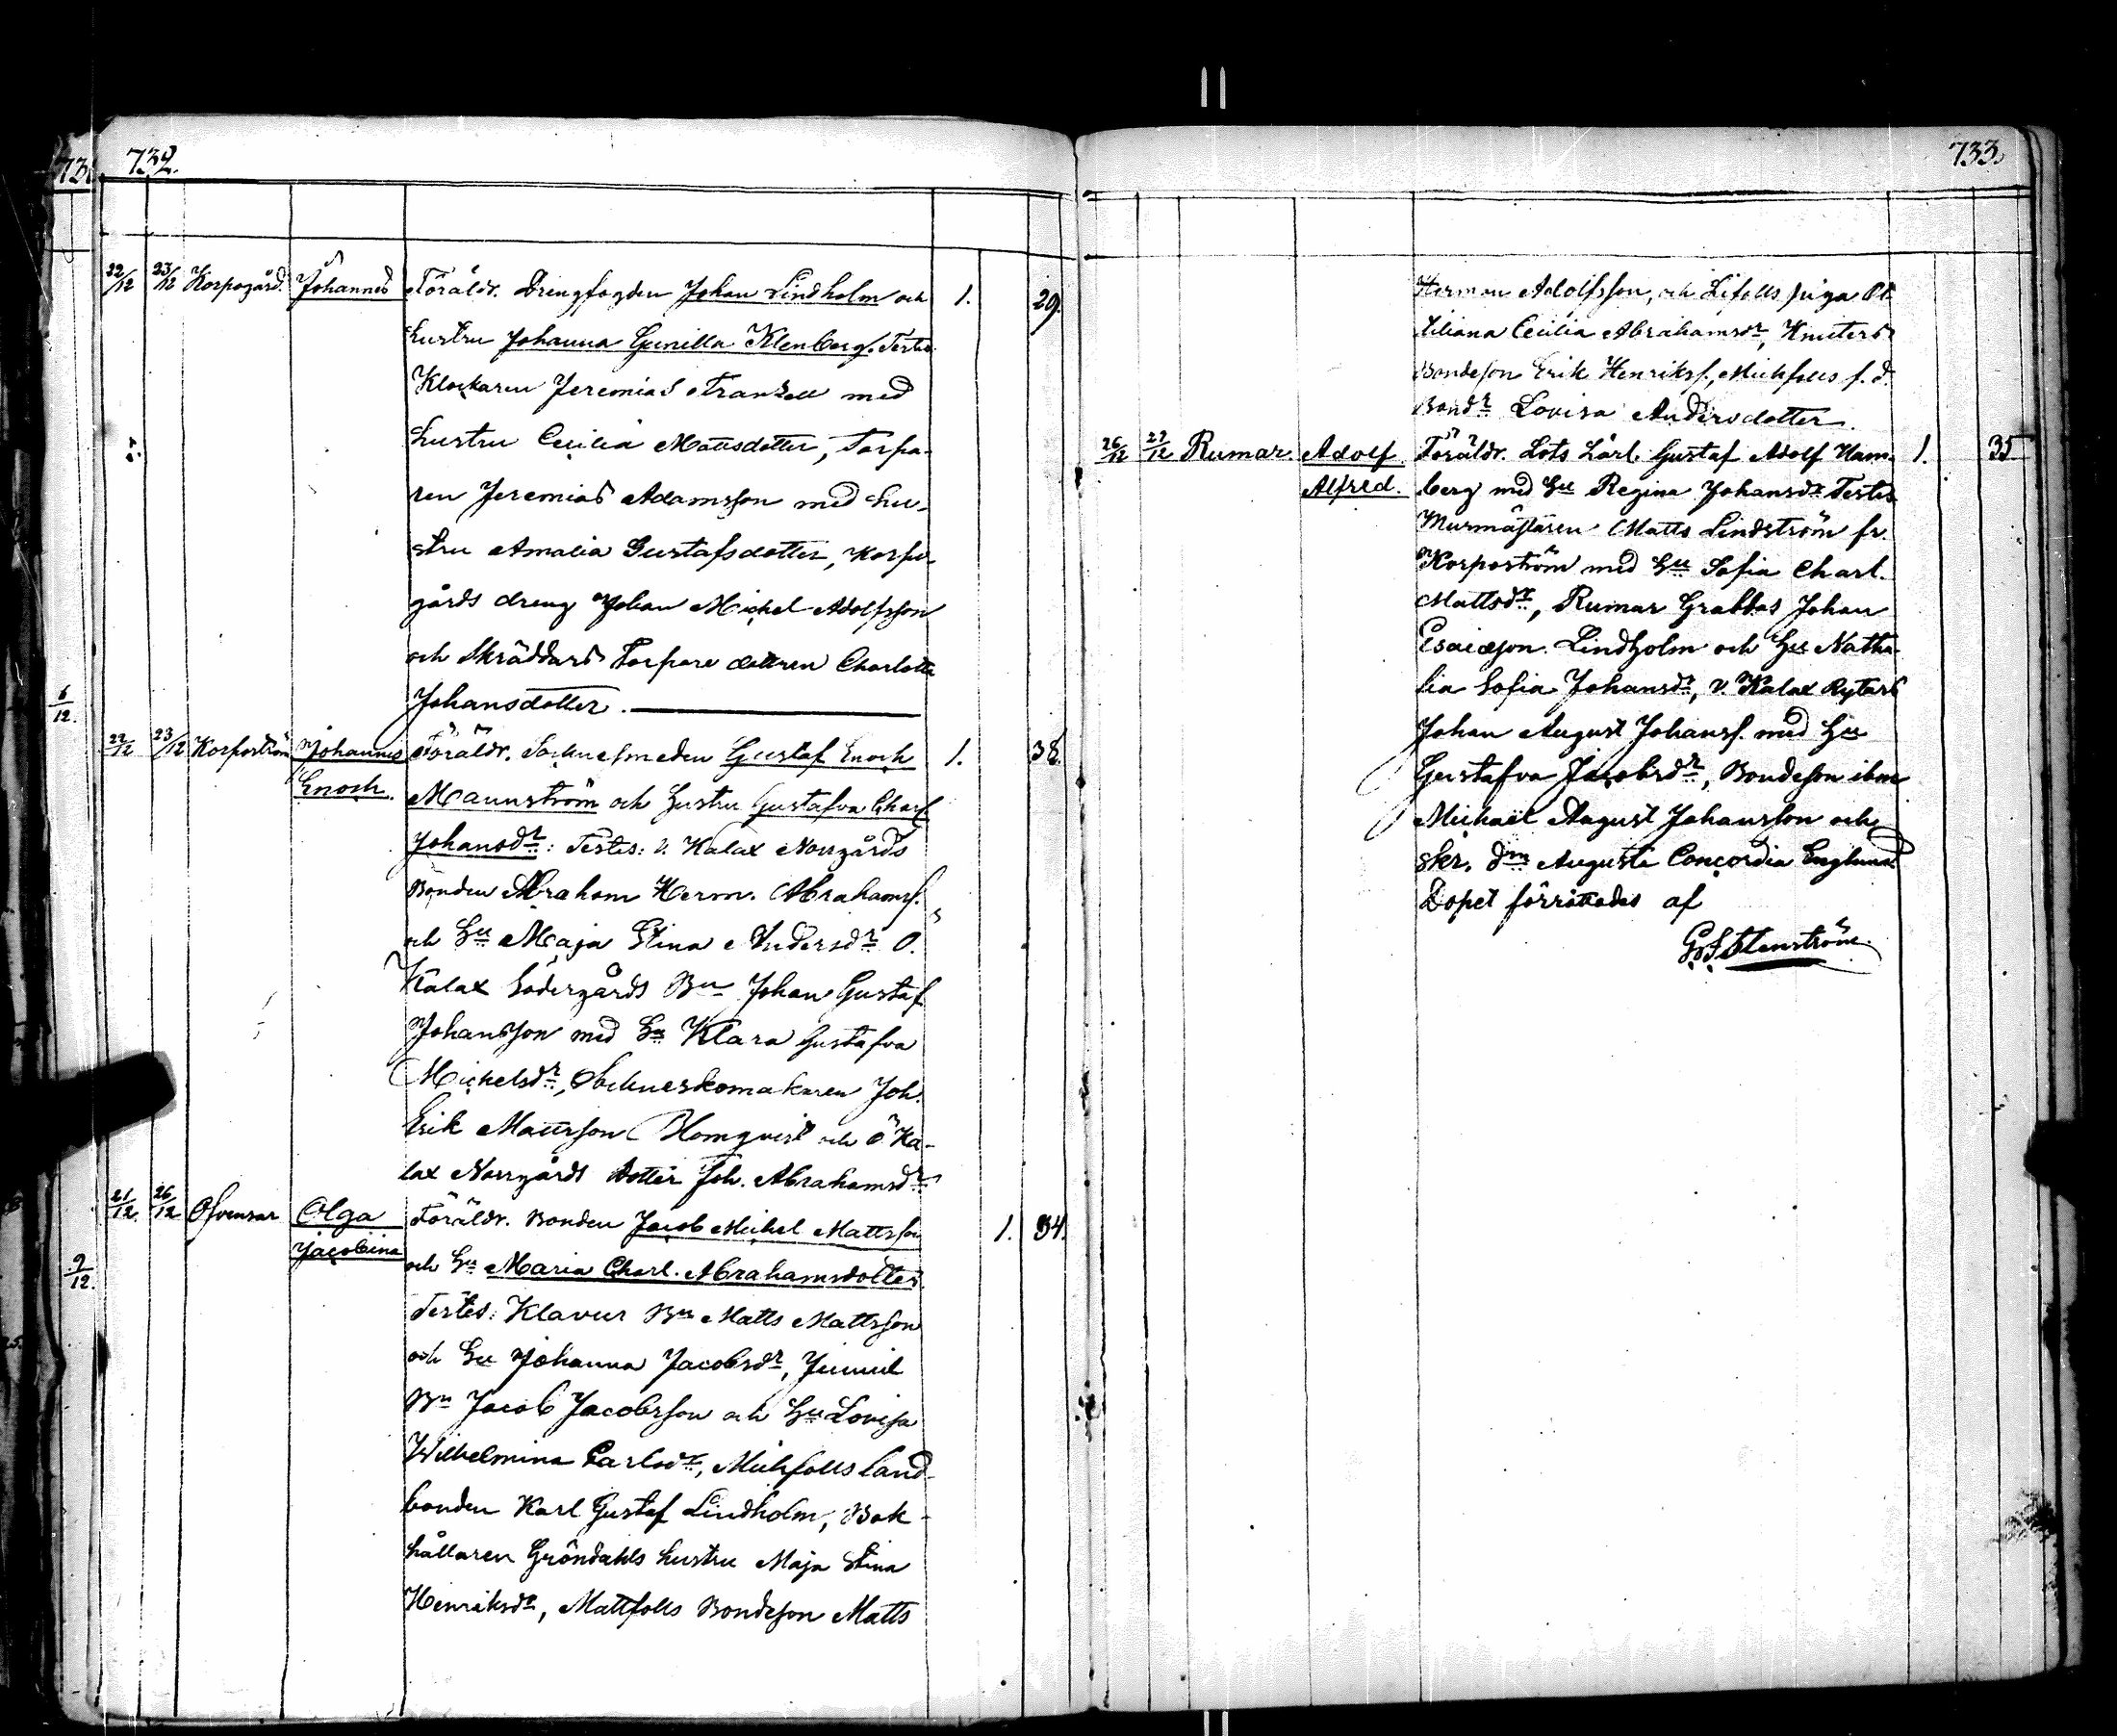 732.
22/12 23/12 Korpogård. Johannes Föräldr. Drengfogden Johan Lindholm och 1. 29.
hustru Johanna Gunilla Klenberg. Testes
Klockaren Jeremias Franzell med
hustru Cecilia Mattsdotter, Torpa-
ren Jeremias Adamsson med hu-
stru Amalia Gustafsdotter, Korpo-
gårds dreng Johan Michel Adolfsson
och Skräddars Torpare dottren Charlotta
Johansdotter.
22/12 23/12 Korpoström Johannes Föräldr. Socknesmeden Gustaf Enoch 1. 38.
Enoch. Mannström och hustru Gustafva Charl.
Johansdr: Testes: V. Kalax Norrgårds
Bonden Abraham Herm. Abrahamss.
och Hu Maja Stina Andersdr Ö.
Kalax Södergårds Bn Johan Gustaf
Johansson med Hu Klara Gustafva
Michelsdr, Sockneskomakaren Joh.
Erik Mattsson Blomqvist och Ö Ka-
lax Norrgårds dotter Joh. Abrahamsdr
21/12 26/12 Ofvensar Olga Föräldr. Bonden Jacob Michel Mattsson 1. 34.
Jacobina och Hu Maria Charl. Abrahamsdotter.
Testes: Klavus Bn Matts Mattsson
och Hu Johanna Jacobsdr,
Bn Jacob Jacobsson och Hu Lovisa
Wilhelmina Carlsdr, Michfolls land-
bonden Karl Gustaf Lindholm, Bok-
hållaren Gröndahls hustru Maja Stina
Henriksdr, Mattfolls Bondeson Matts
733.
Herman Adolfsson, och Lifolls piga Ot
tiliana Cecilia Abrahamsdr, Knuters
Bondeson Erik Henrikss., Michfolls f. d.
Bondr Lovisa Andersdotter.
26/12 27/12 Rumar. Adolf Föräldr. Lots Lärl. Gustaf Adolf Ham- 1. 35
Alfred. berg med Hu Regina Johansdr Testes
Murmästaren Matts Lindström fr.
Korpoström med Hu Sofia Charl.
Mattsdr, Rumar Grabbas Johan
Esaiasson Lindholm och Hu Natha-
lia Sofia Johansdr, V. Kalax Rytars
Johan August Johanss. med Hu
Gustafva Jacobsdr, Bondeson ibm
Michaël August Johansson och
Skr. dm Augusta Concordia Englund.
Dopet förrättades af
G. F. Stenström.